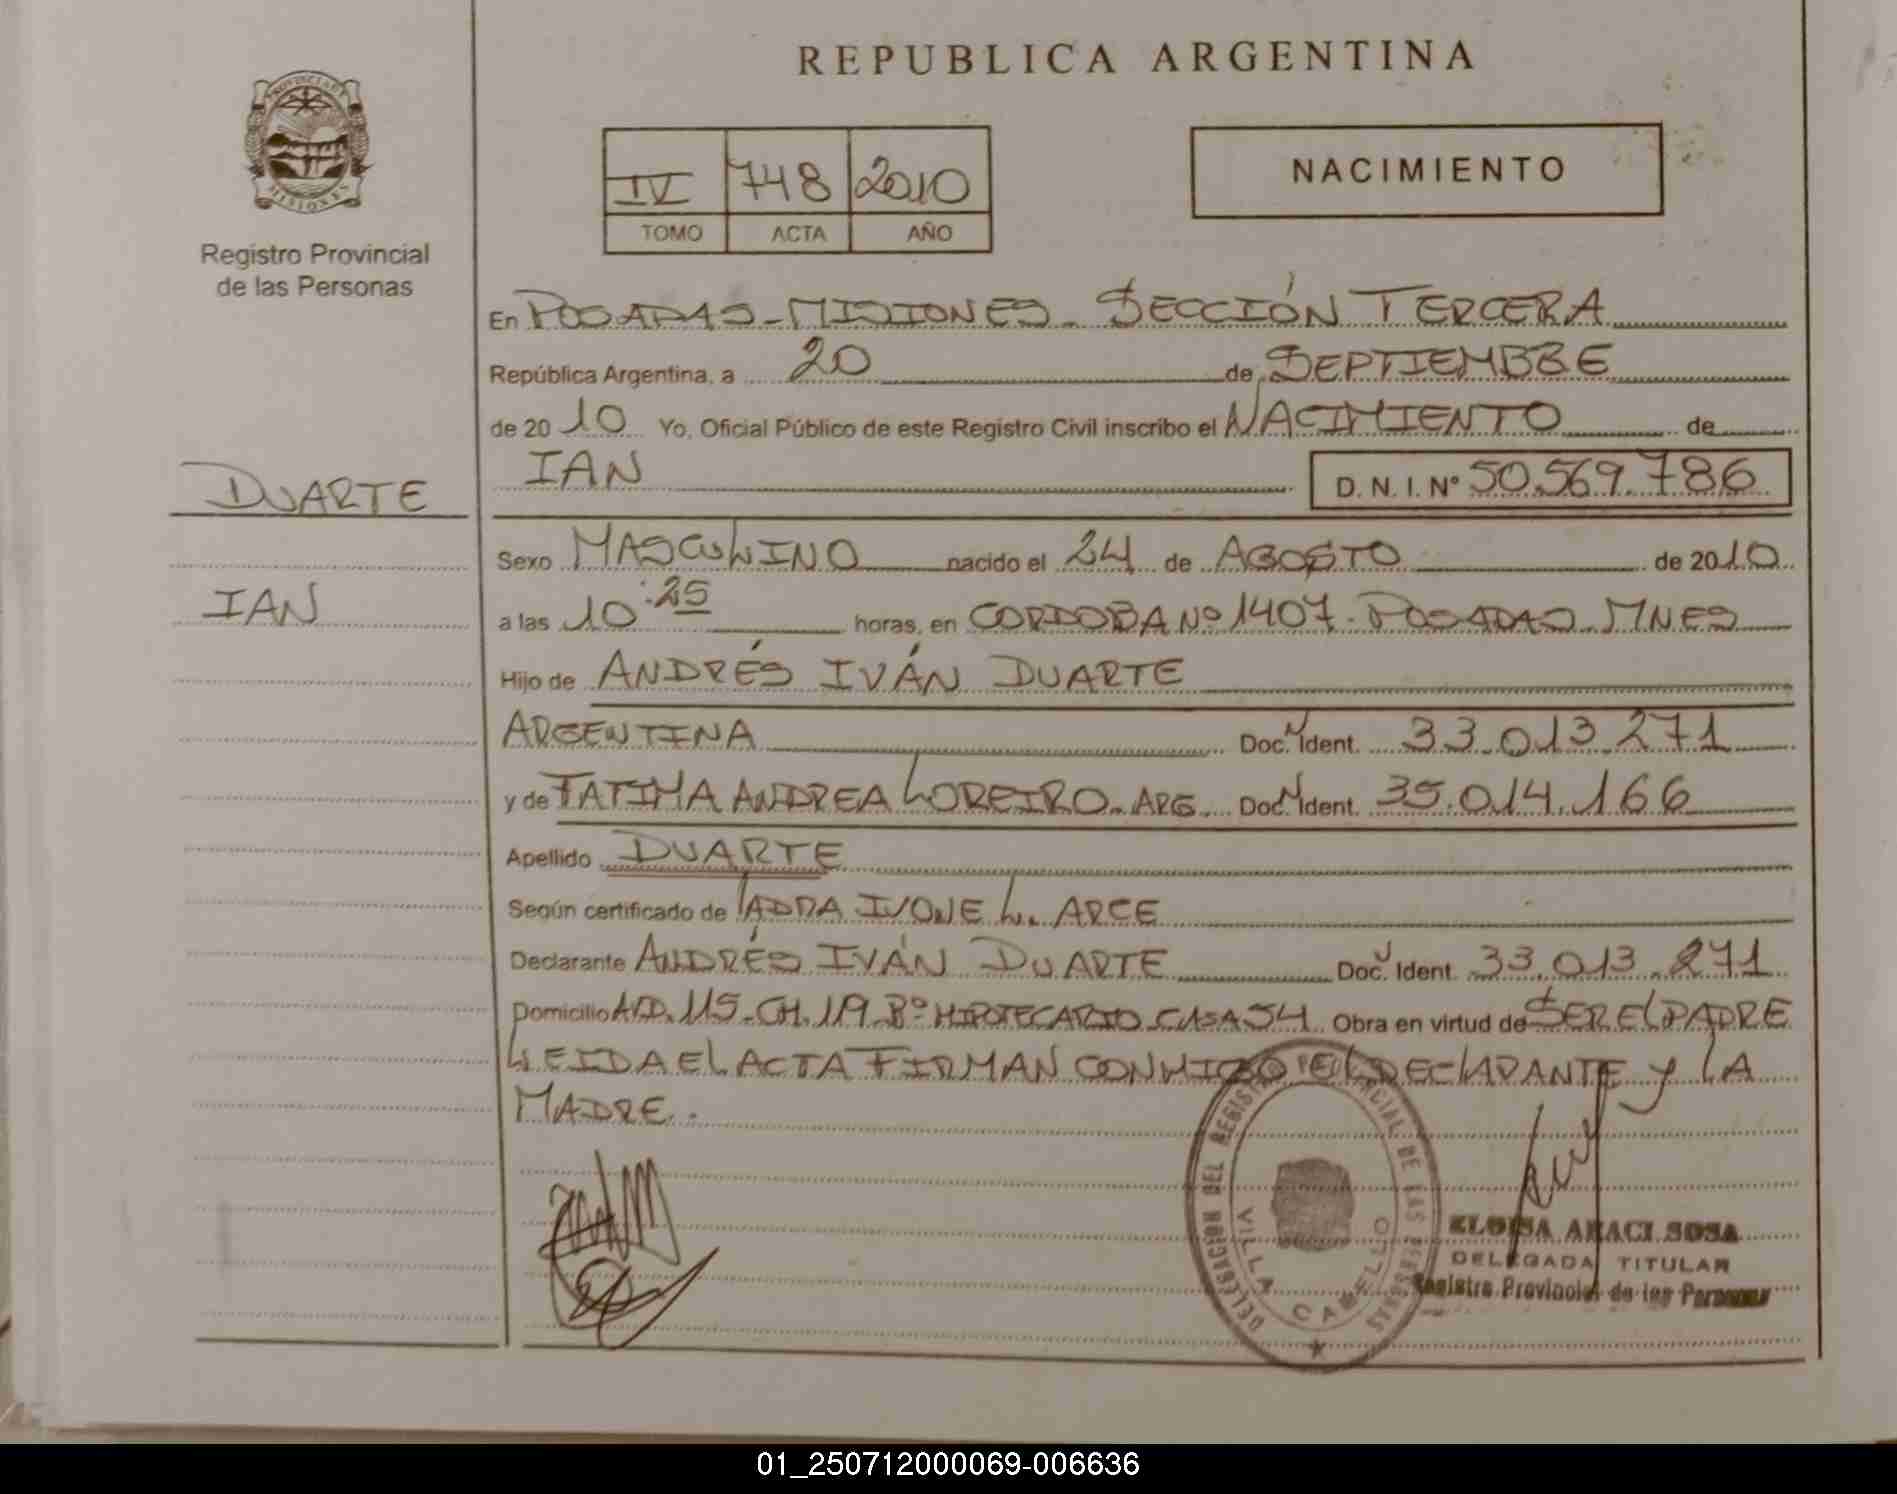 REPUBLICA ARGENTINA
PROVINCIA DE MISIONES
Registro Provincial
de las Personas
IV 748 2010
TOMO ACTA AÑO
NACIMIENTO
En POSADAS-MISIONES. SECCIÓN TERCERA
República Argentina, a 20 de SEPTIEMBRE
de 2010 Yo, Oficial Público de este Registro Civil inscribo el NACIMIENTO de
IAN D. N. I. N° 50.569.786
DUARTE
IAN
Sexo MASCULINO nacido el 24 de AGOSTO de 2010
a las 10:25 horas, en CORDOBA Nº 1407. POSADAS MNES
Hijo de ANDRÉS IVÁN DUARTE
ARGENTINA Doc. Ident. 33.013.271
y de FATIMA ANDREA LOREIRO. ARG. Doc. Ident. 35.014.166
Apellido DUARTE
Según certificado de IVONE L. ARCE
Declarante ANDRÉS IVÁN DUARTE Doc. Ident. 33.013.271
Domicilio AVD. 115-CH.119 Bº HIPOTECARIO CASA 54 Obra en virtud de SER EL PADRE
LEIDA EL ACTA FIRMAN CONMIGO EL DECLARANTE y LA
MADRE.
DELEGACION DEL REGISTRO PROVINCIAL DE LAS PERSONAS
VILLA CABELLO
ELOISA ARACI SOSA
DELEGADA TITULAR
Registro Provincial de las Personas
01_250712000069-006636